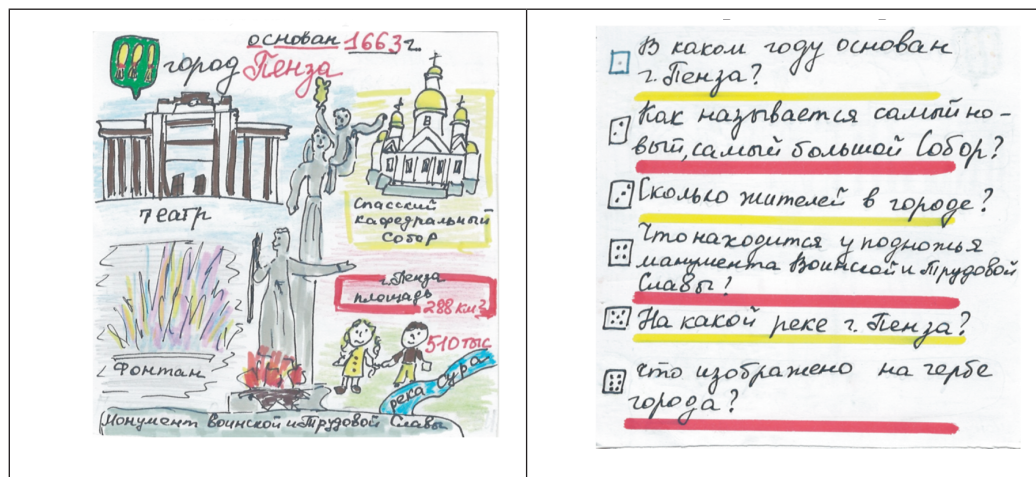 основан 1663 г.
город Пенза
театр
Спасский
кафедральный
Собор
г. Пенза
площадь
288 км²
510 тыс
Фонтан
река Сура
Монумент Воинской и Трудовой Славы
В каком году основан
г. Пенза?
Как называется самый но-
вый, самый большой Собор?
Сколько жителей в городе?
Что находится у подножья
манумента Воинской и Трудовой
Славы?
На какой реке г. Пенза?
Что изображено на гербе
города?